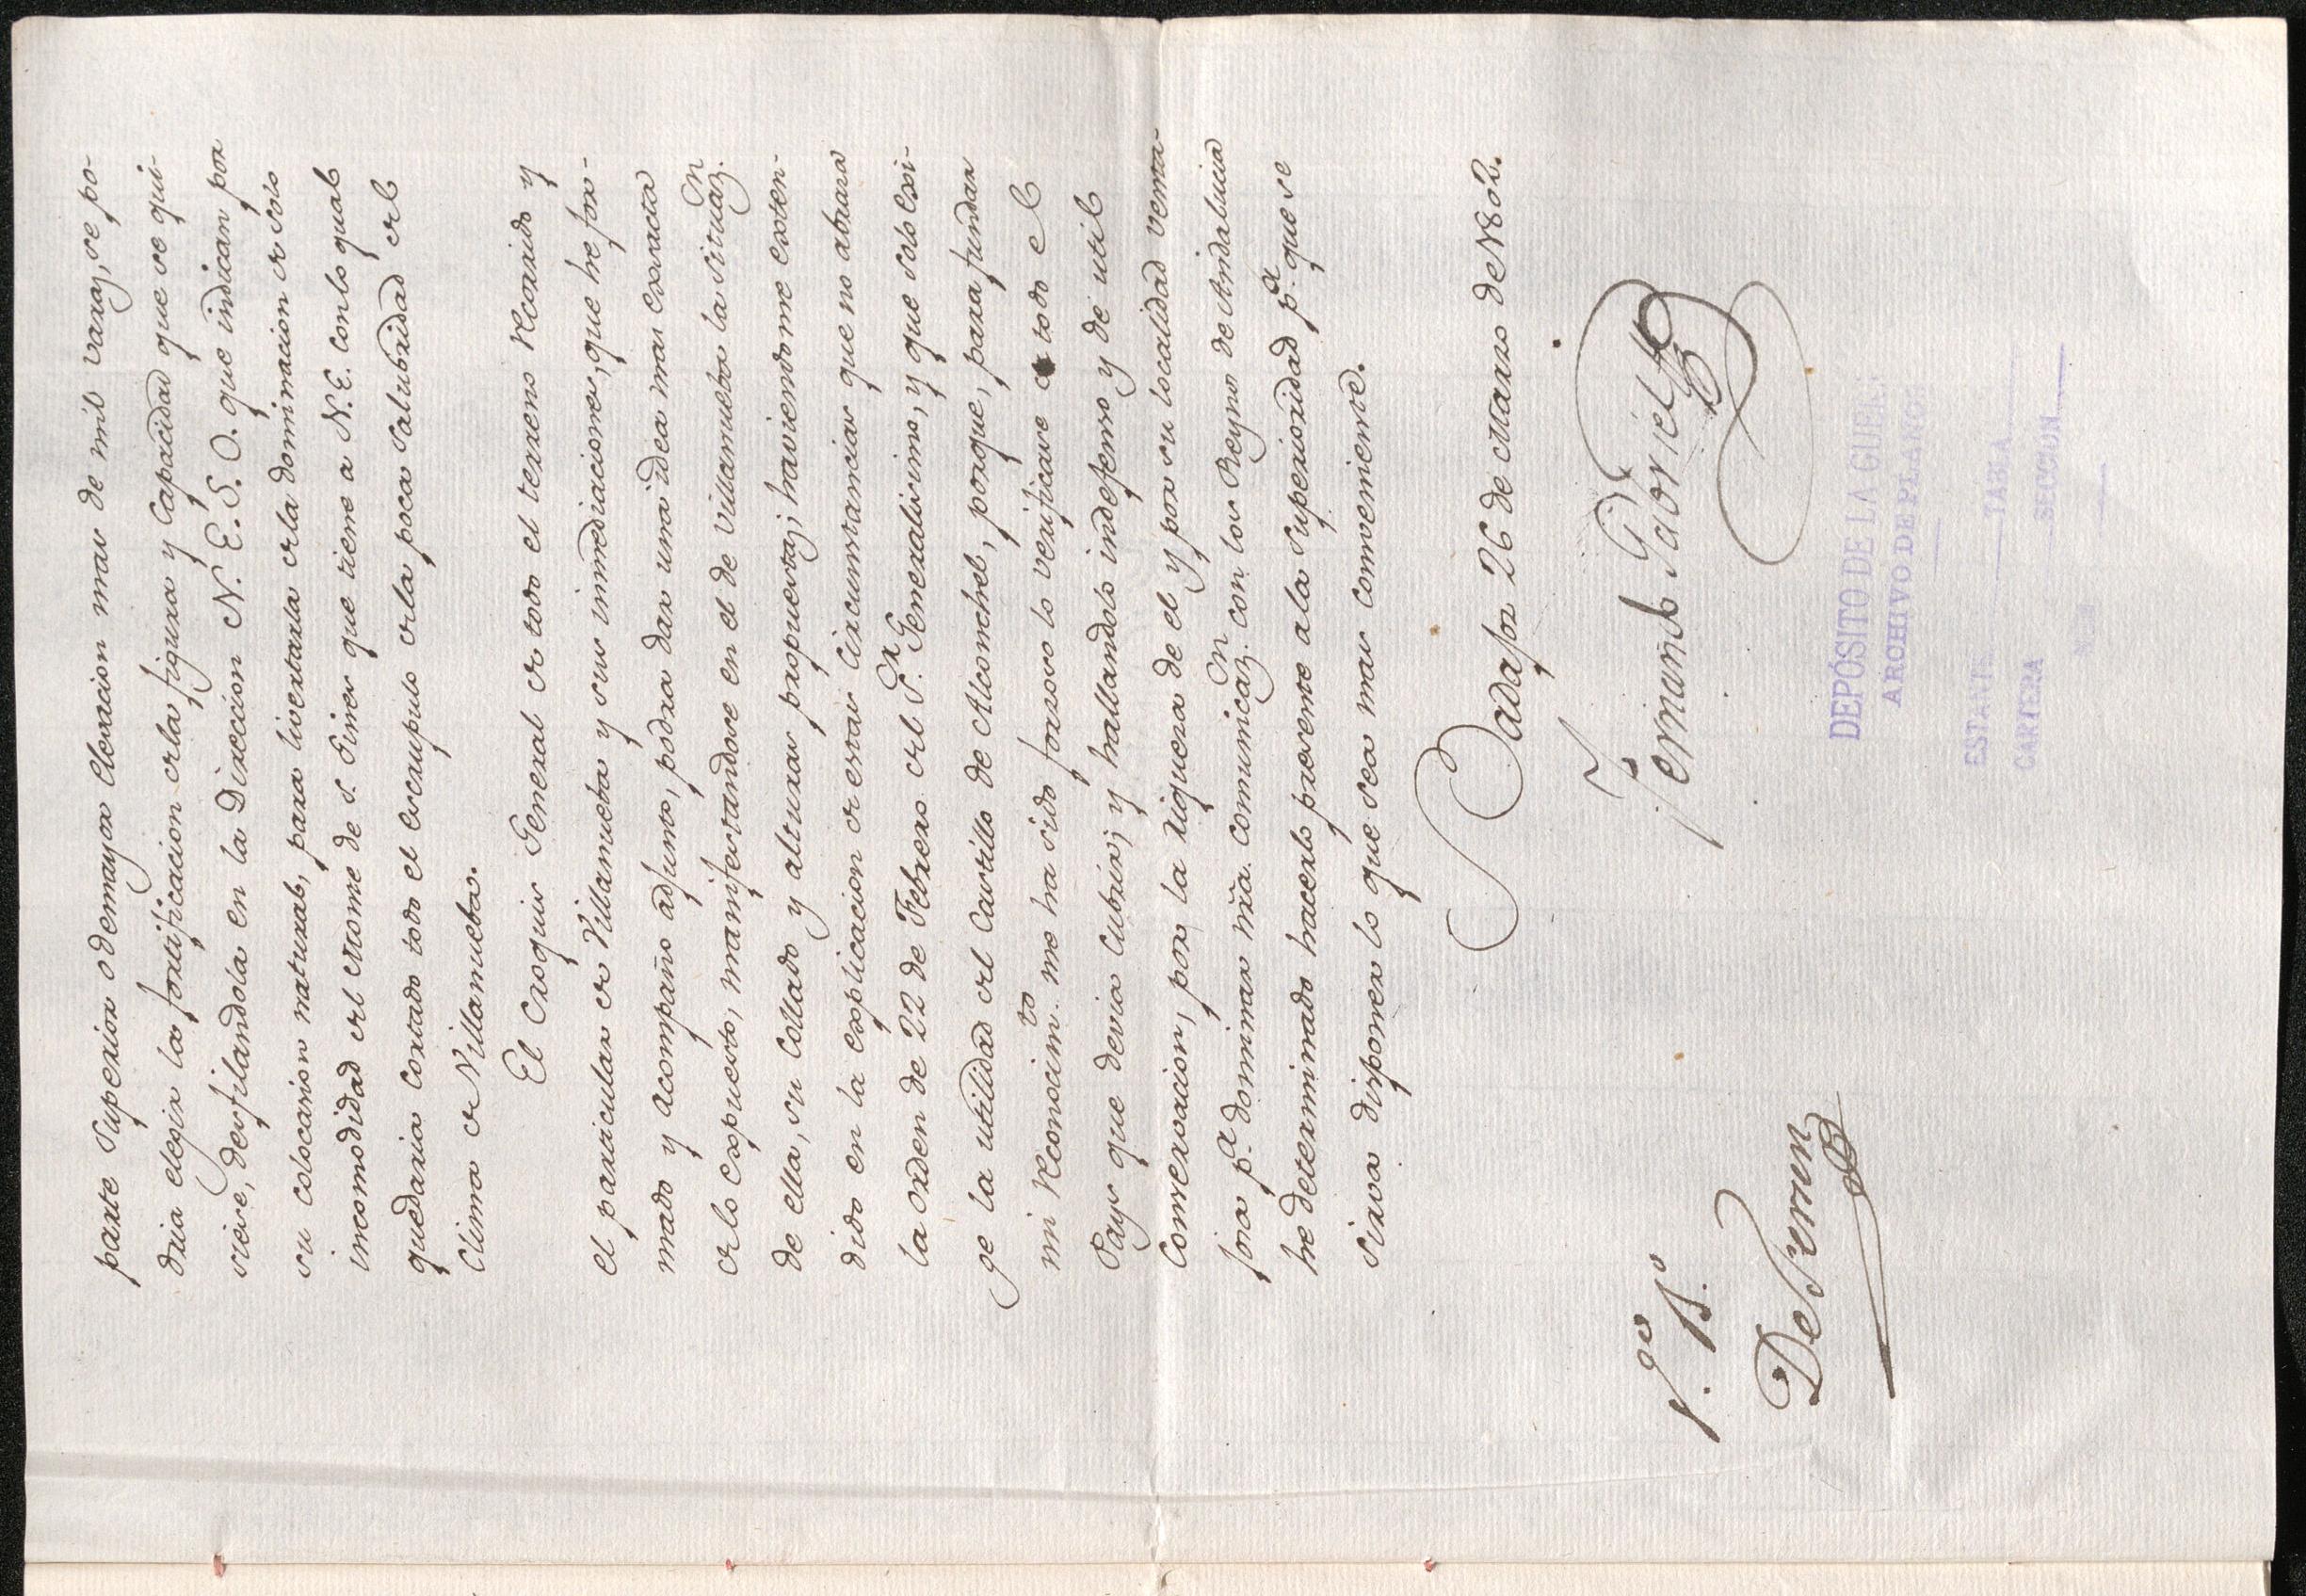 parte Superior o demayor Elevacion mas de mil varas, se po-
dria elegir la fortificacion dela figura y Capacidad que se qui-
siese, desfilandola en la Direccion N. E. S. O. que indican por
su colocacion natural, para livertarla dela dominacion de solo
incomodidad del Monte de S. Gines que tiene a N.E. con lo qual
quedaria Cortado todo el escrupulo dela poca Salubridad del
Clima de Villanueba.
El Croquis General de todo el terreno Recorrido y
el particular de Villanueba y sus inmediaciones, que he for-
mado y acompaño adjunto, podra dar una idea mas Exacta
delo Expuesto, manifestandose en el de Villanueba la Situaz.n
de ella, su Collado y alturas propuestas; haviendome Exten-
dido en la Explicacion de estas Circunstancias que no abraza
la orden de 22 de Febrero del S.r Generalisimo, y que solo Exi-
ge la utilidad del Castillo de Alconchel, porque, para fundar
mi Reconocim.to me ha sido forzoso lo verificase de todo el
Pays que devia Cubrir; y hallandolo indefenso y de util
Conservacion, por la riqueza de el y por su localidad venta-
josa p.a dominar nr̃a. Comunicaz.n con los Reynos de Andalucia
he determinado hacerlo presente a la Superioridad p.a que se
sirva disponer lo que sea mas combeniente.
Badajoz 26 de Marzo de 1802.
Fernando Gabriel
V.to B.o
De
DEPÓSITO DE LA GUERRA
ARCHIVO DE PLANOS
ESTANTE TABLA
CARTERA SECCION
NUM